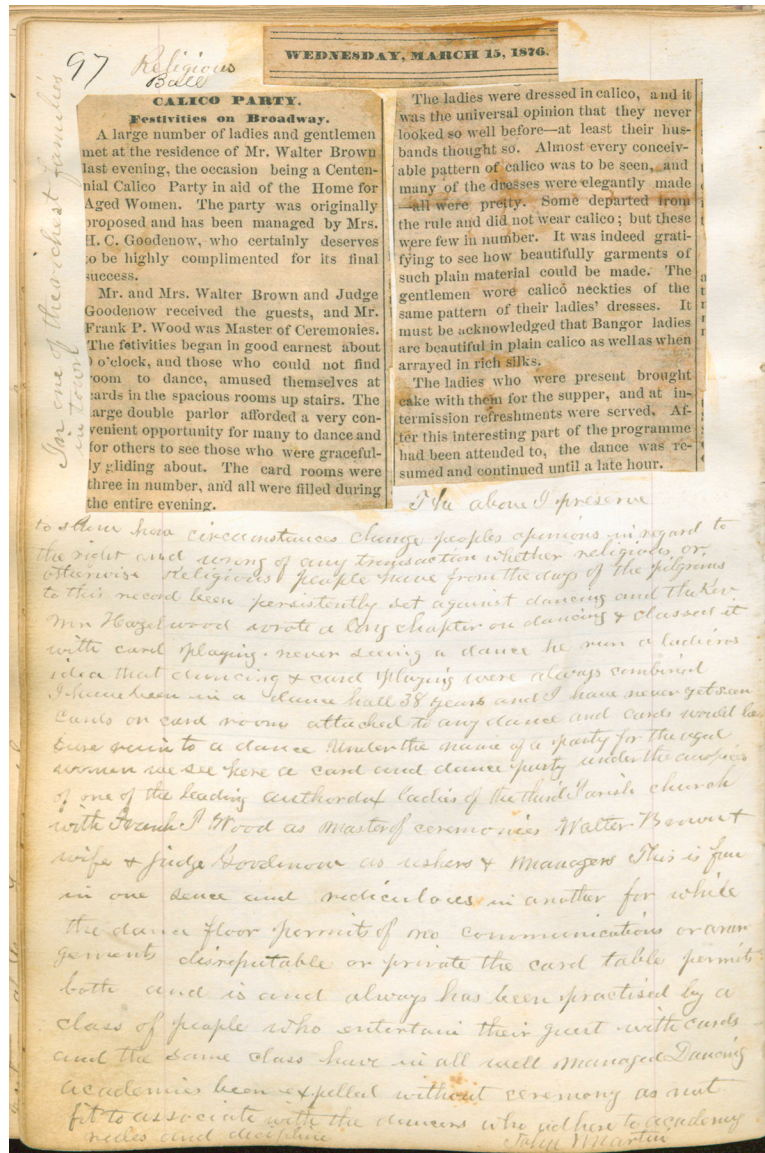 97 Religious
Ball
WEDNESDAY, MARCH 15, 1876.
In one of the richest families
in town
CALICO PARTY.
Festivities on Broadway.
A large number of ladies and gentlemen
met at the residence of Mr. Walter Brown
last evening, the occasion being a Centen-
nial Calico Party in aid of the Home for
Aged Women. The party was originally
proposed and has been managed by Mrs.
H. C. Goodenow, who certainly deserves
to be highly complimented for its final
success.
Mr. and Mrs. Walter Brown and Judge
Goodenow received the guests, and Mr.
Frank P. Wood was Master of Ceremonies.
The fetivities began in good earnest about
o'clock, and those who could not find
room to dance, amused themselves at
cards in the spacious rooms up stairs. The
large double parlor afforded a very con-
venient opportunity for many to dance and
for others to see those who were graceful-
ly gliding about. The card rooms were
three in number, and all were filled during
the entire evening.
The ladies were dressed in calico, and it
was the universal opinion that they never
looked so well before—at least their hus-
bands thought so. Almost every conceiv-
able pattern of calico was to be seen, and
many of the dresses were elegantly made
—all were pretty. Some departed from
the rule and did not wear calico; but these
were few in number. It was indeed grati-
fying to see how beautifully garments of
such plain material could be made. The
gentlemen wore calico neckties of the
same pattern of their ladies' dresses. It
must be acknowledged that Bangor ladies
are beautiful in plain calico as well as when
arrayed in rich silks.
The ladies who were present brought
cake with them for the supper, and at in-
termission refreshments were served. Af-
ter this interesting part of the programme
had been attended to, the dance was re-
sumed and continued until a late hour.
The above I preserve
to show how circumstances change peoples opinions in regard to
the right and wrong of any transaction whether religious or
otherwise Religious people have from the days of the pilgrims
to this record been persistently set against dancing and the Rev
Mr Hazelwood wrote a long chapter on dancing & classed it
with card playing. never seeing a dance he run a
idea that dancing & card playing were always combined
I have been in a dance hall 38 years and I have never yet seen
cards or card rooms attached to any dance and cards would be
sure ruin to a dance Under the name of a party for the aged
women we see here a card and dance party under the auspices
of one of the leading authordox ladies of the third Parish church
with Frank P Wood as Master of ceremonies Walter Brown &
wife & judge Goodenow as ushers & Managers This is fun
in one sence and rediculous in another for while
the dance floor permits of no communications or aran
gements disreputable or private the card table permits
both and is and always has been practised by a
class of people who entertain their guest with cards
and the same class have in all well managed Dancing
academies been expelled without ceremony as not
fit to associate with the dancers who adhere to academy
rules and decipline John Martin